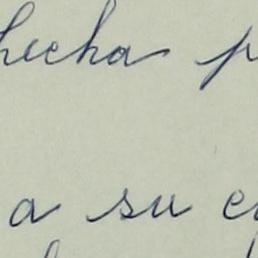 hecha p
a su e